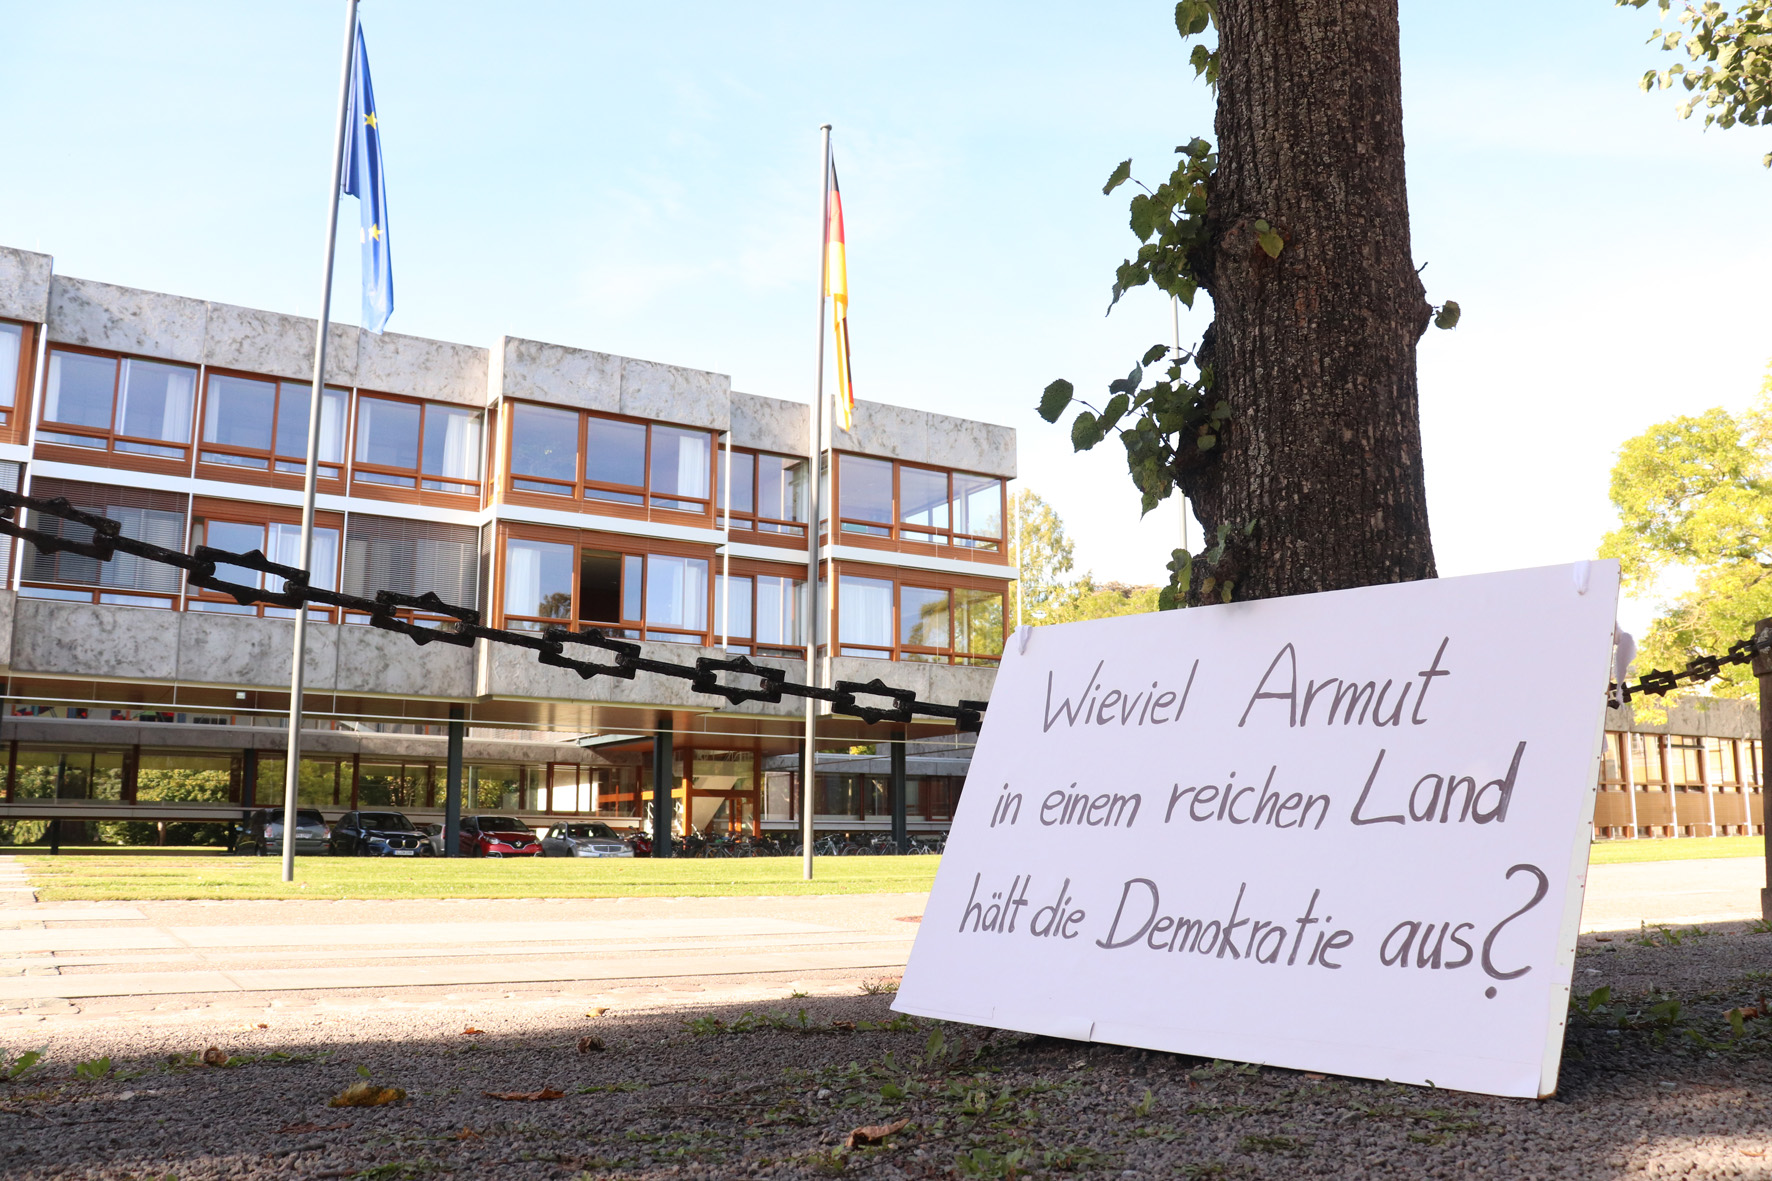 Wieviel Armut
in einem reichen Land
hält die Demokratie aus?